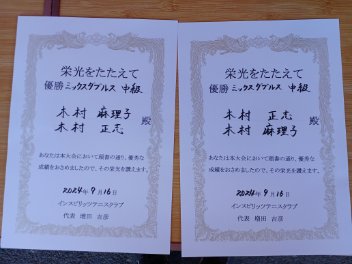 栄光をたたえて
優勝 ミックスダブルス 中級
木村 麻理子
木村 正志
殿
あなたは本大会において頭書の通り、優秀な
成績をおさめましたので、その栄光を讃えます。
2024年9月16日
インスピリッツテニスクラブ
代表 増田 吉彦
栄光をたたえて
優勝 ミックスダブルス 中級
木村 正志
木村 麻理子
殿
あなたは本大会において頭書の通り、優秀な
成績をおさめましたので、その栄光を讃えます。
2024年9月16日
インスピリッツテニスクラブ
代表 増田 吉彦